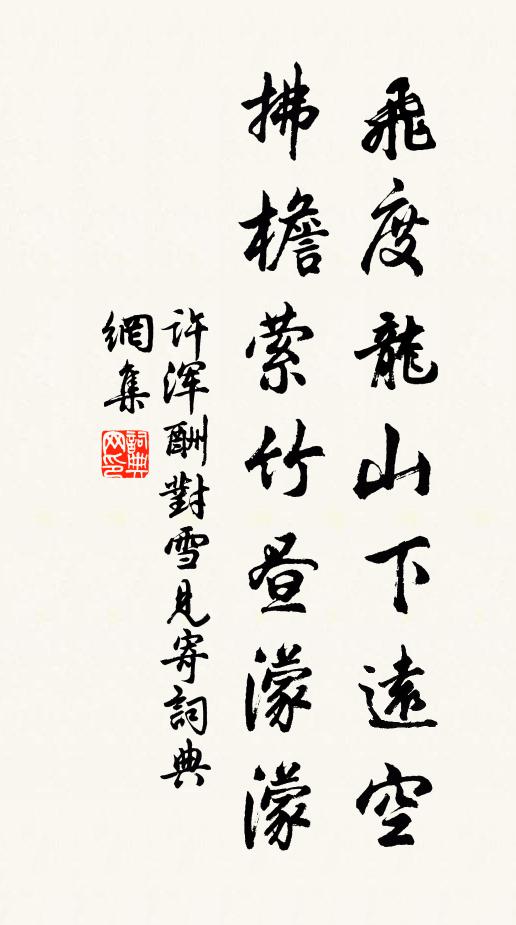 飛度龍山下遠空
拂檐縈竹昼濛濛
许浑酬對雪見寄詞典
網集
詞典网印